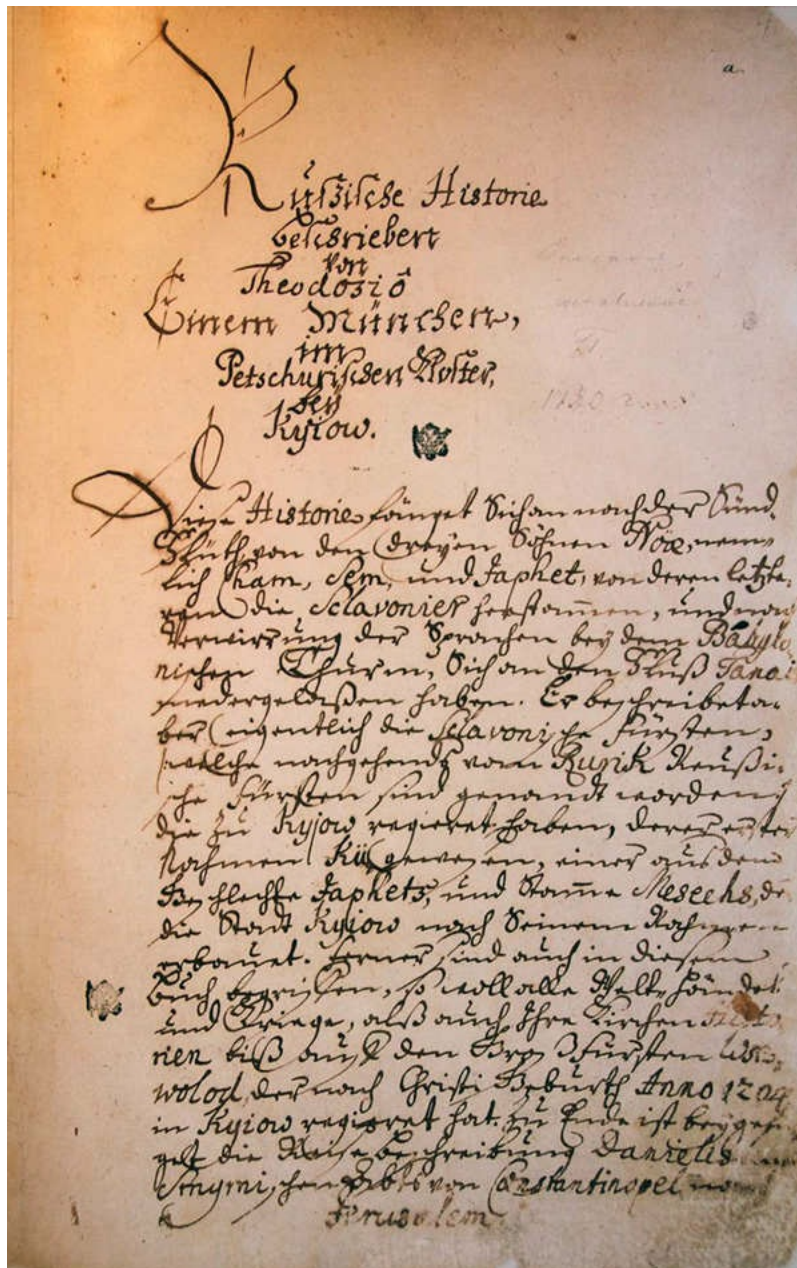 a.
Rußische Historie
beschrieben
von
Theodosio
Einem München,
im
Petschurischen Kloster,
bey
Kyiow.
Diese Historie fänget Sich an nach der Sünd-
Flüth von den dreyen Söhnen Noæ, nem-
lich Cham, Sem, und Japhet, von deren letzte-
ren die Sclavonier herstam̄en, und nach
Verwirrung der Sprachen bey dem Babylo-
nischen Thurm, Sich an den Fluß Tanai
niedergelaßen haben. Er beschreibet a-
ber eigentlich die Sclavonische Fürsten,
welche nachgehends vom Rurik Reußi-
sche Fürsten sind genandt worden,
die zu Kyjow regieret haben, derer erster
Nahmen Kii gewesen, einer aus dem
Geschlechte Japhets, und Stam̄e Mesechs, der
die Stadt Kyiow nach Seinem Nahmen
erbauet. Ferner sind auch in diesem
Buch begriffen, so woll alle Welt-Händel
und Kriege, alß auch Ihre Kirchen Histo-
rien biß auff den Groß Fürsten Wse-
wolod, der nach Christi Geburth Anno 1204
in Kyiow regieret hat. Zu Ende ist beygefü-
get die Reise beschreibung Danielis
Smyrnischen Abts von Constantinopel nach
Jerusalem.